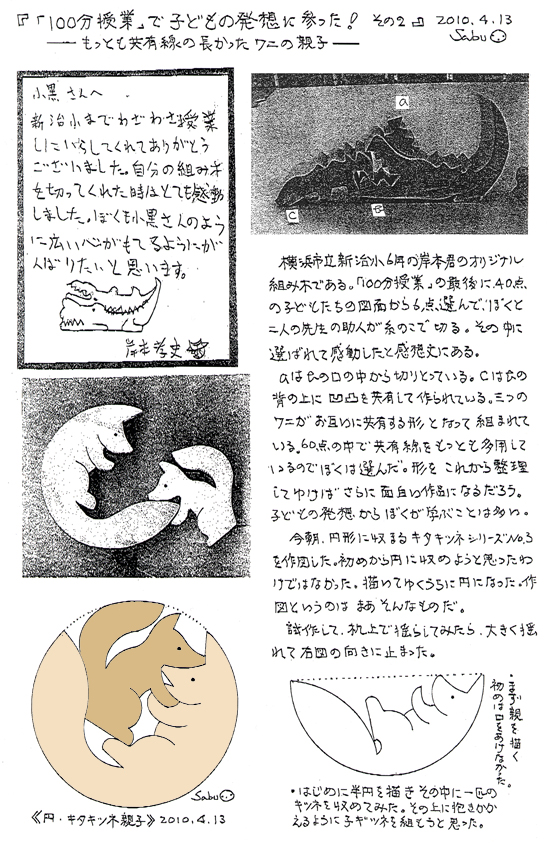 『「100分授業」で子どもの発想に参った! その2』 2010.4.13
Sabu
―― もっとも共有線の長かったワニの親子 ――
小黒さんへ
新治小までわざわざ授業
しにいらしてくれてありがとう
ございました。自分の組み木
を切ってくれた時はとても感動
しました。ぼくも小黒さんのよう
に広い心がもてるようにが
んばりたいと思います。
岸本孝史
a
b
c
横浜市立新治小6年の岸本君のオリジナル
組み木である。「100分授業」の最後に、40点
の子どもたちの図面から6点選んで、ぼくと
二人の先生の助人が糸のこで切る。その中に
選ばれて感動したと感想文にある。
aはbの口の中から切りとっている。cはbの
背の上に凹凸を共有して作られている。三つの
ワニがお互いに共有する形となって組まれて
いる。60点の中で共有線をもっとも多用して
いるのでぼくは選んだ。形をこれから整理
してゆけばさらに面白い作品になるだろう。
子どもの発想からぼくが学ぶことは多い。
今朝、円形に収まるキタキツネシリーズNo.3
を作図した。初めから円に収めようと思ったわ
けではなかった。描いてゆくうちに円になった。作
図というのは まあ そんなものだ。
試作して、机上で揺らしてみたら、大きく揺
れて右図の向きに止まった。
Sabu
《円・キタキツネ親子》2010.4.13
・まず親を描く
初めは口をあけなかった。
・はじめに半円を描きその中に一匹の
キツネを収めてみた。その上に抱きかか
えるように子ギツネを組もうと思った。